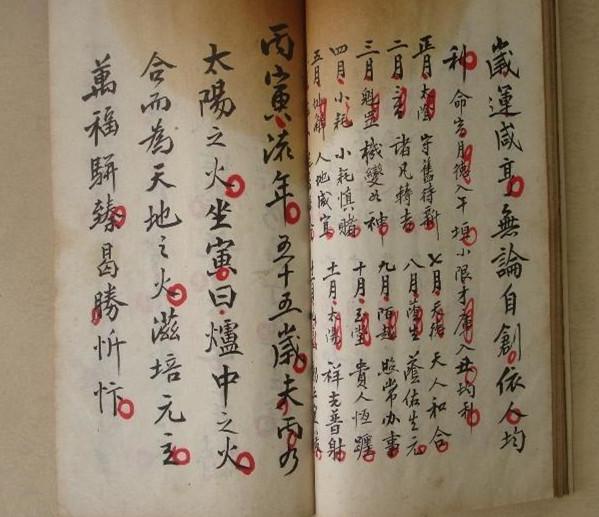 歲運咸亨無論自創依人均
利命宮月德入午垣小限才庫入垂均利
正月太陰守舊待新
七月天德天人和合
二月
諸凡轉吉
八月蔭生蔭佑生元
三月魁罡機變如神
九月陌越照常办事
四月小耗小耗慎賭
十月玉堂貴人恆躔
五月
人地咸宜
十一月太陽祥光普射
丙寅流年五十五歲未雨乃
太陽之火坐寅曰爐中之火
合而為天地之火滋培元立
萬福駢臻曷勝忻忭